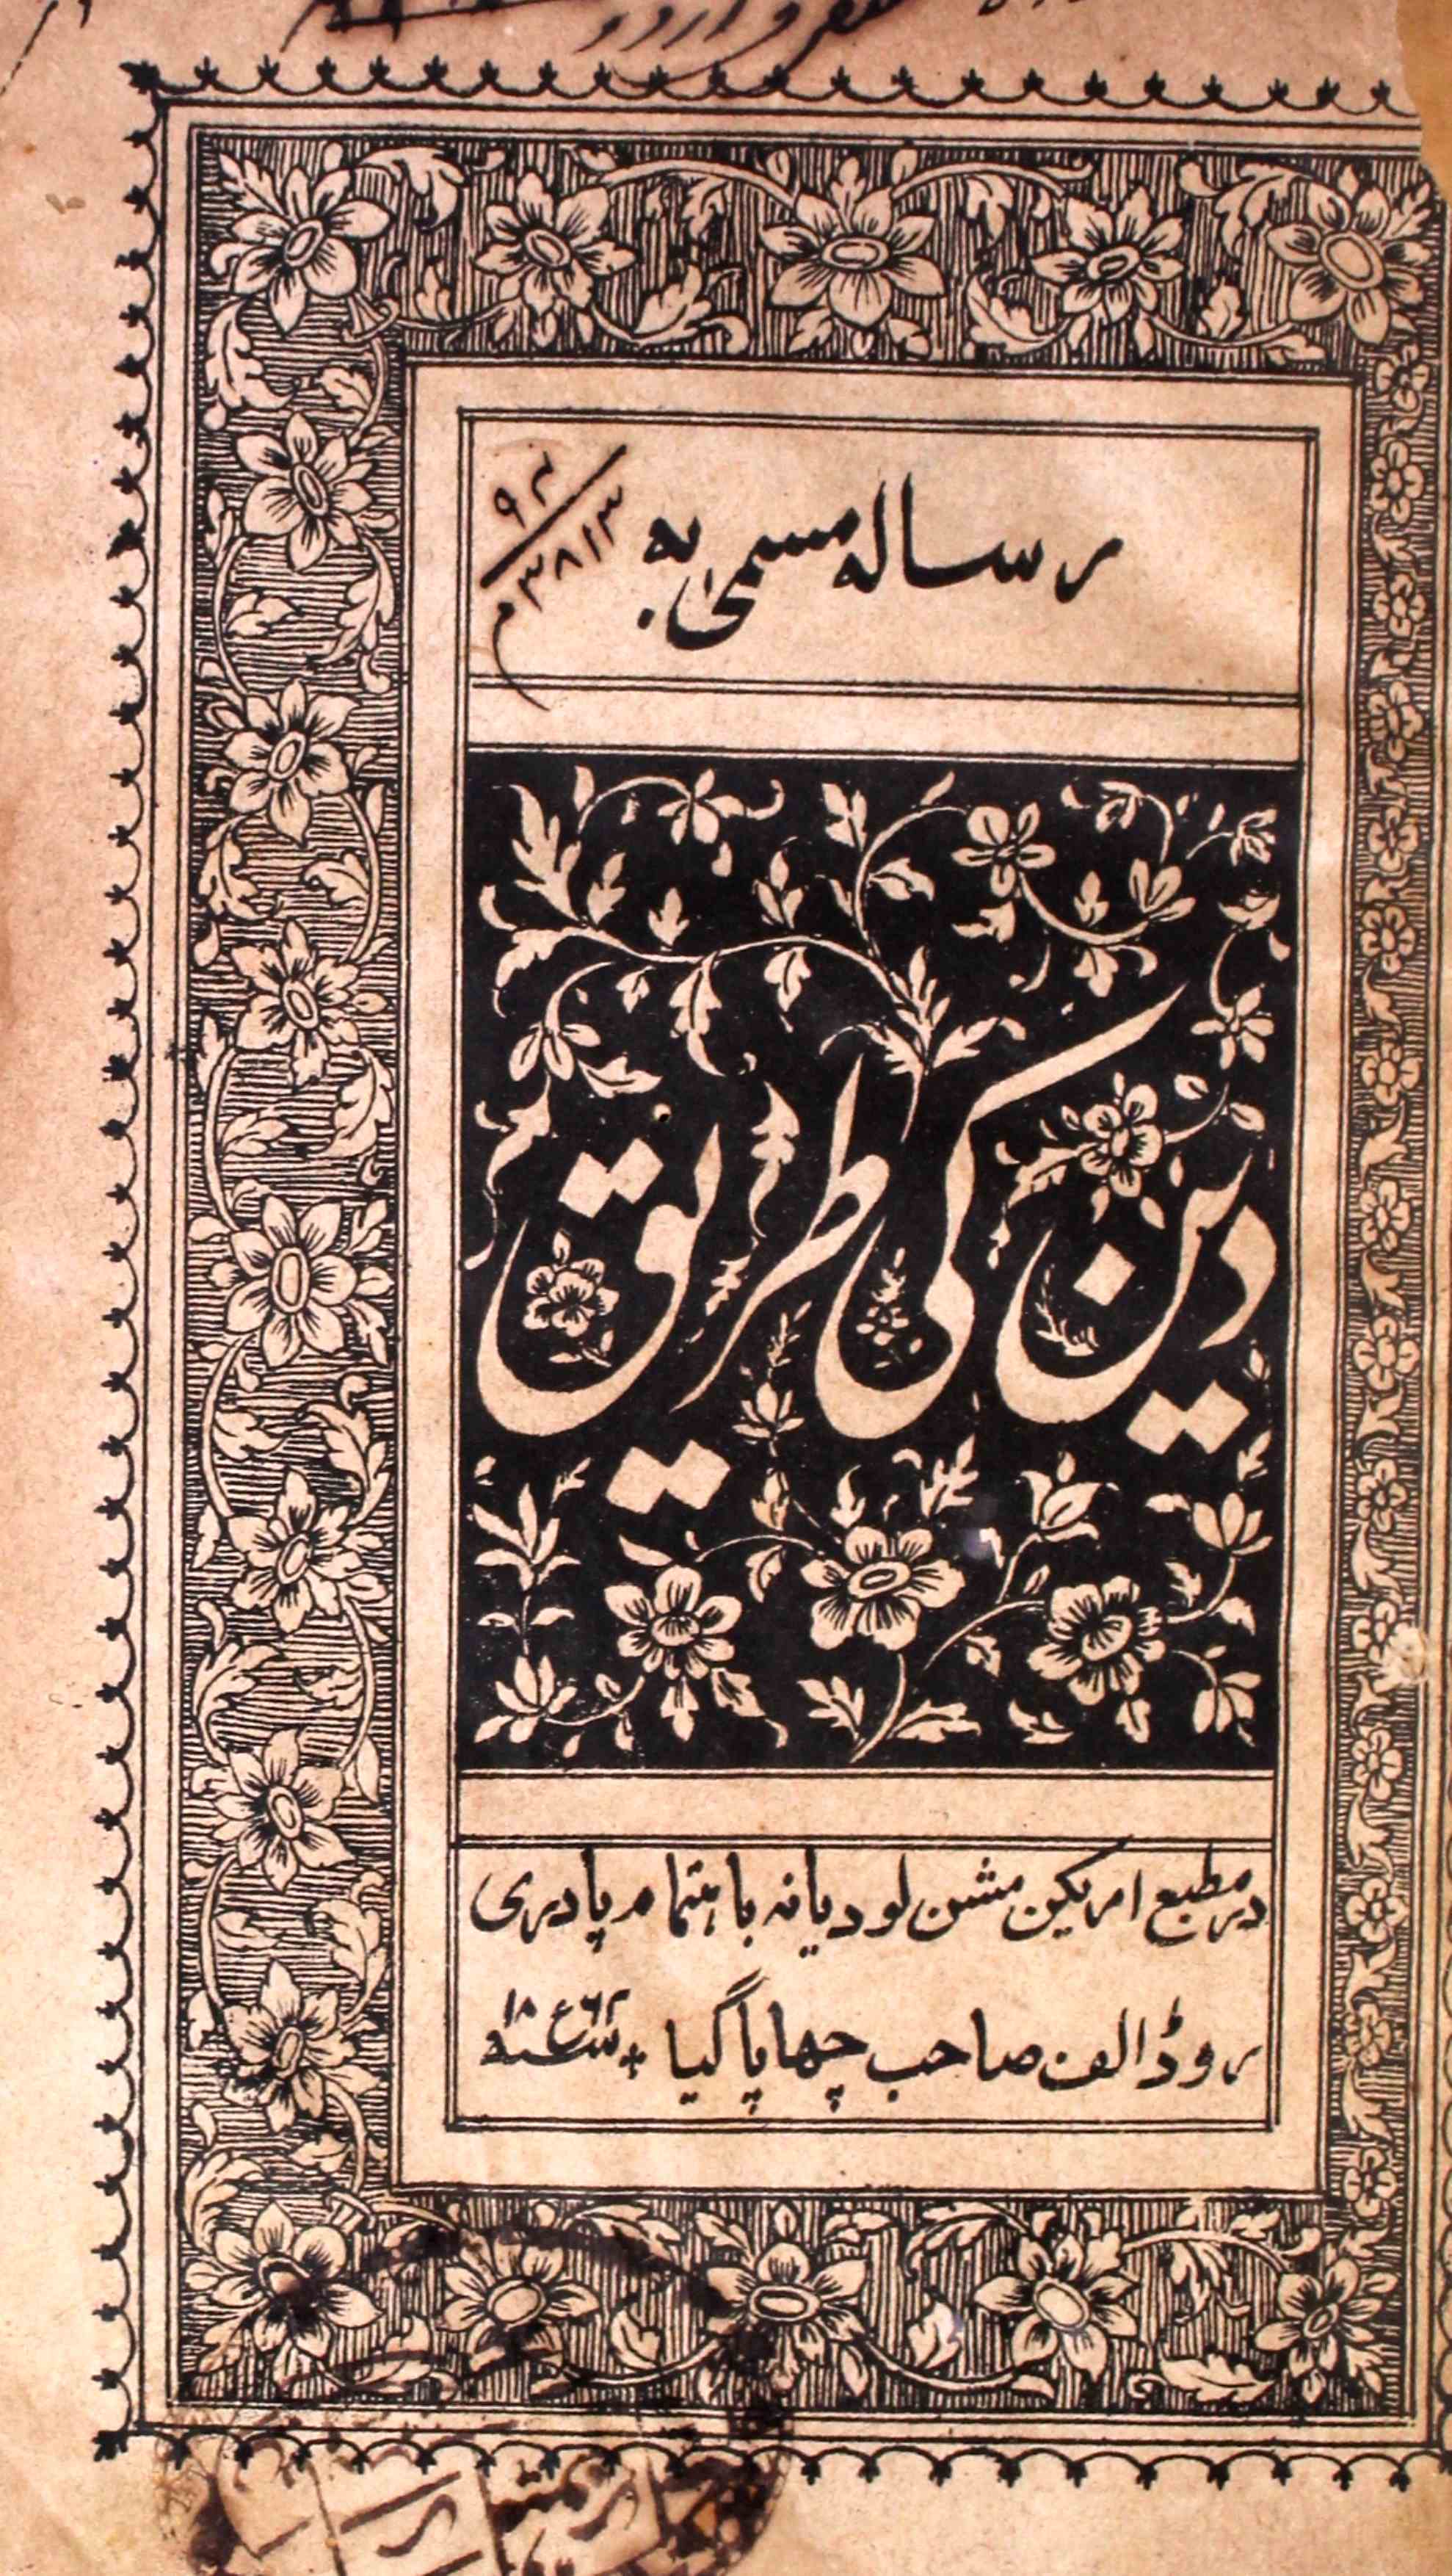 رسالہ مسمیٰ بہ
۹۲
۳۸۱۳
دین کی طریق
در مطبع امریکن مشن لودیانہ باہتمام پادری
روڈالف صاحب چھاپا گیا * سنہ ۱۸۶۲ع